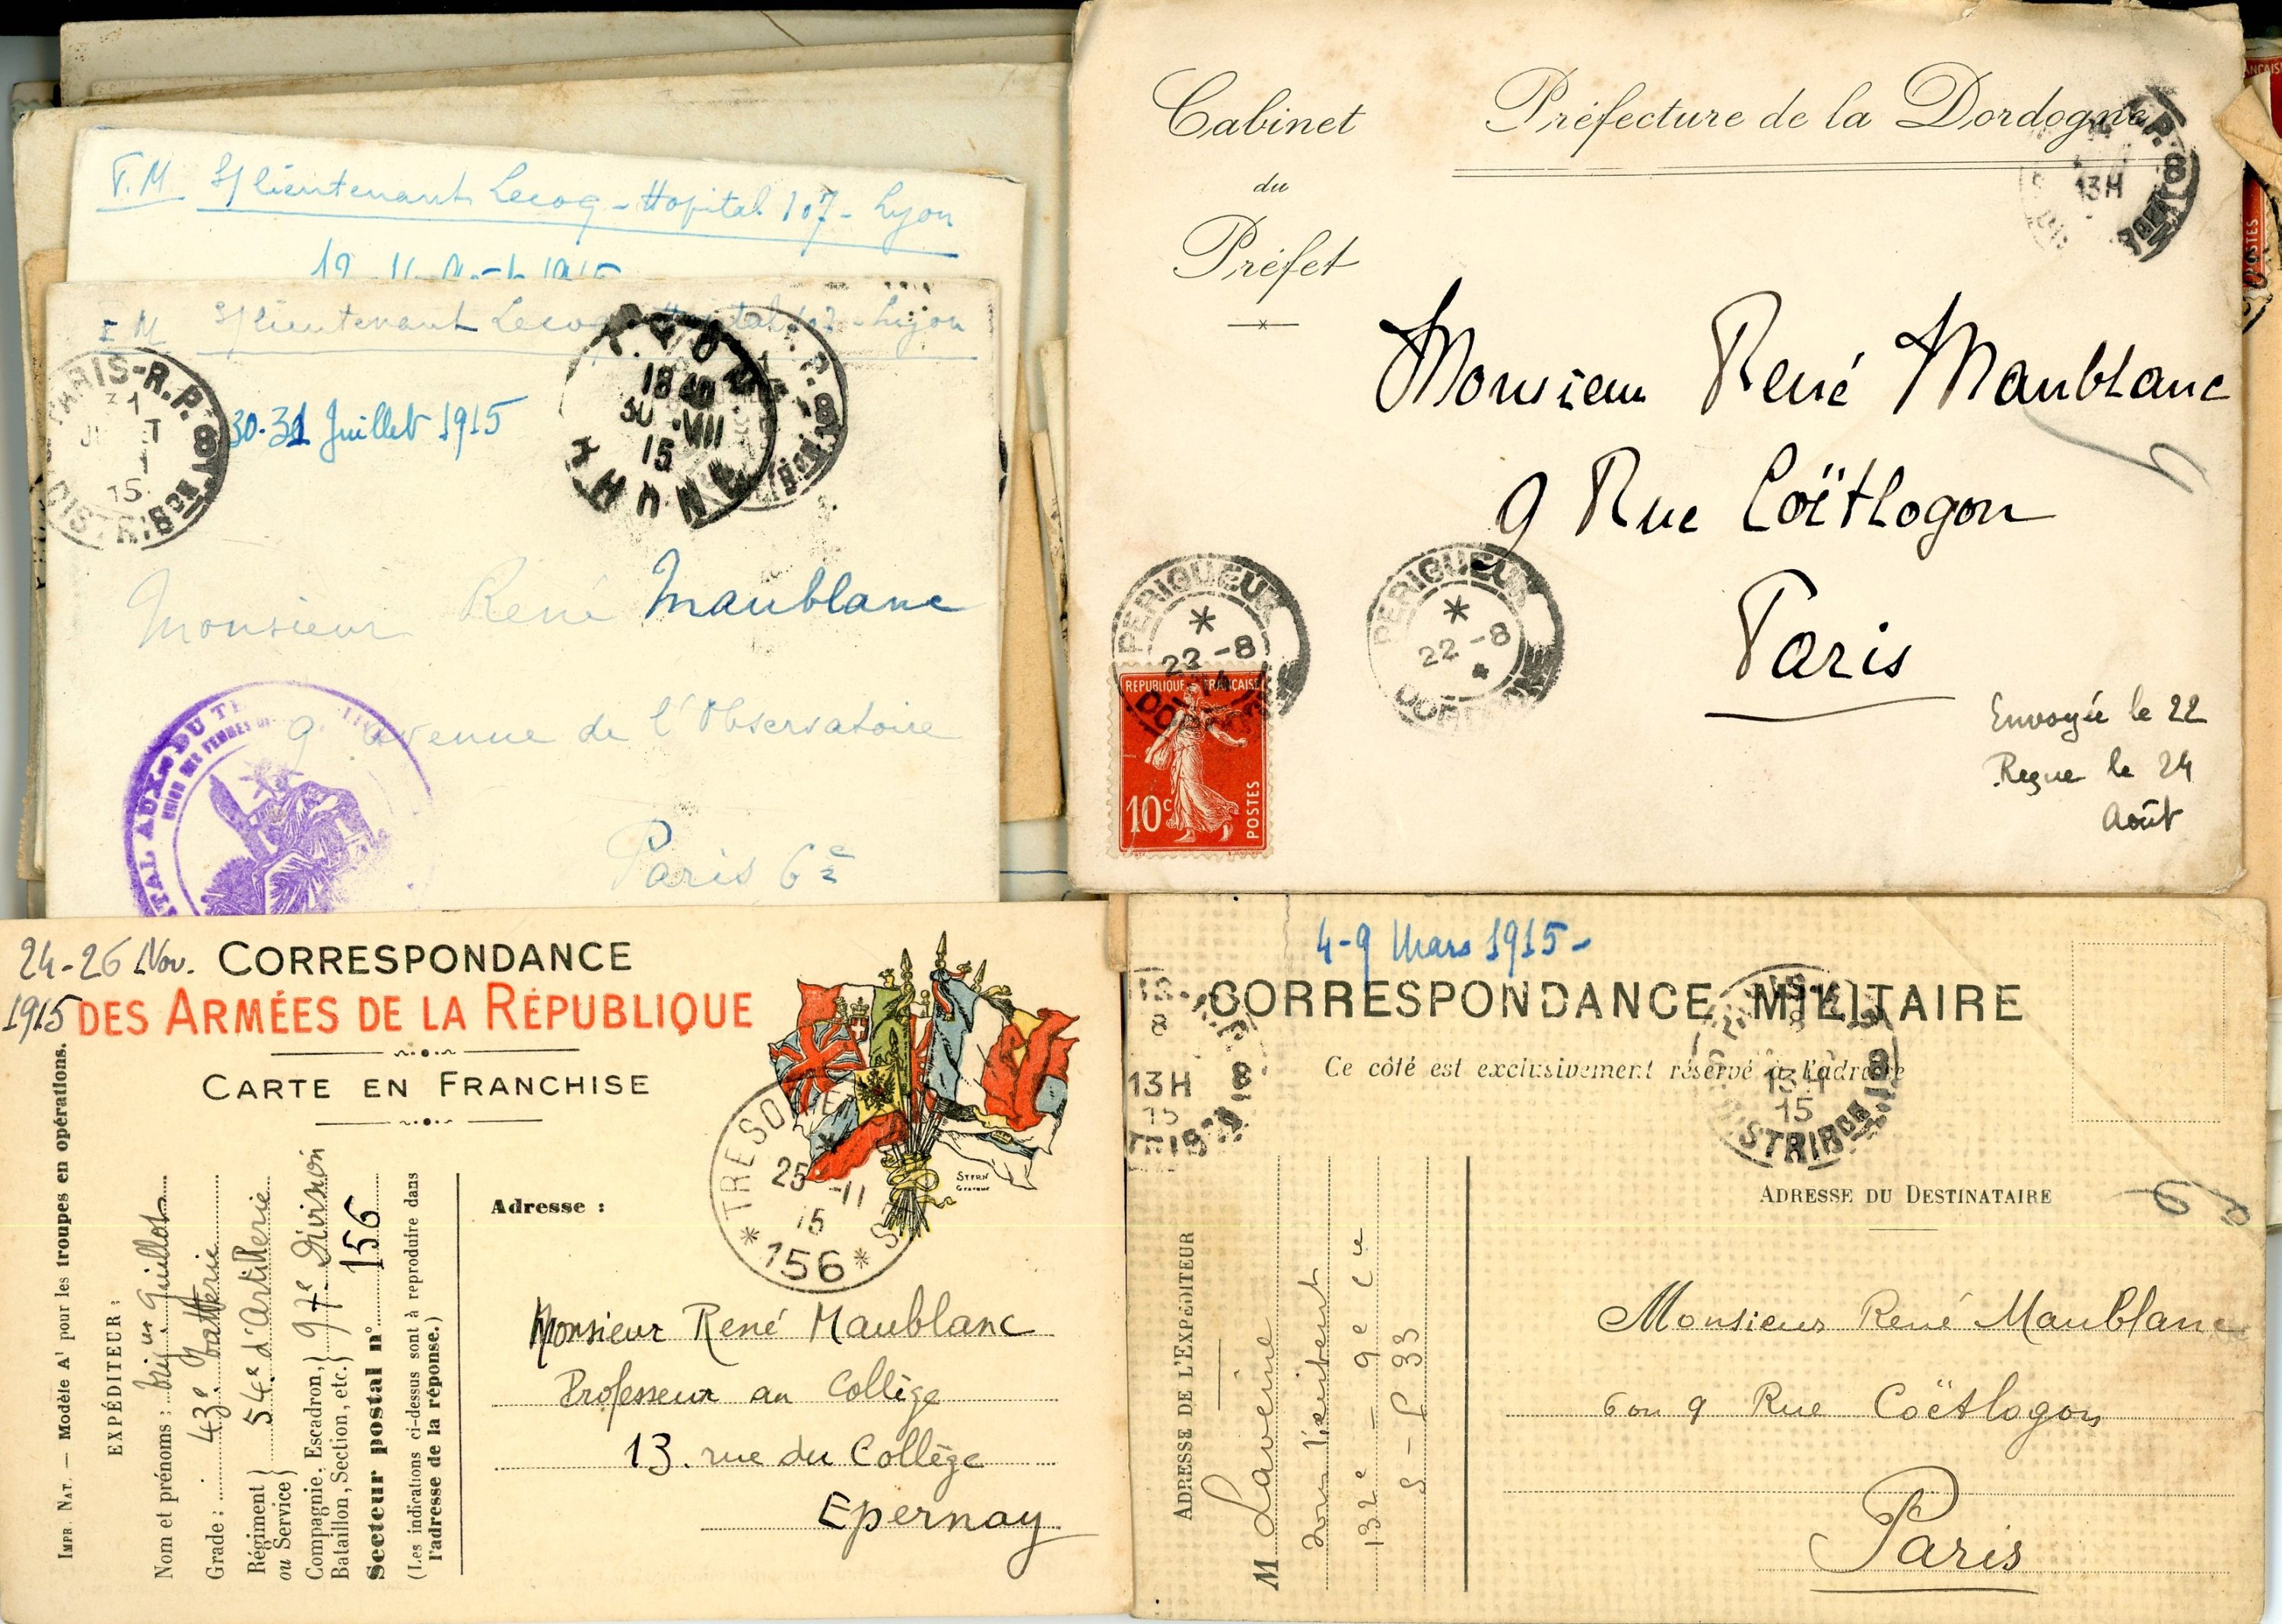 F.M S/lieutenant Lecoq - Hopital 107 - Lyon
F M S/lieutenant Lecoq Hopital 107 - Lyon
PARIS-R.P. 8
31
15
DISTRIBON
30-31 Juillet 1915
LYON
18
30 -VII
15
RHONE
Monsieur René Maublanc
9 avenue de l'Observatoire
Paris 6e
Cabinet
du
Préfet
Préfecture de la Dordogne
13H
Monsieur René Maublanc
9 Rue Coëtlogon
Paris
PERIGUEUX
22-8
DORDOGNE
PERIGUEUX
22-8
DORDOGNE
REPUBLIQUE FRANÇAISE
10c
POSTES
Envoyée le 22
Reçue le 24
Août
POSTES
24-26 Nov.
1915
CORRESPONDANCE
DES ARMÉES DE LA RÉPUBLIQUE
CARTE EN FRANCHISE
STERN
GRAVEUR
TRESOR ET
25 -11
15
* 156 *
IMPR. NAT. — Modèle A1 pour les troupes en opérations.
EXPÉDITEUR :
Nom et prénoms : Guillot
Grade : 43e Batterie
Régiment
ou Service} 54e d'Artillerie
Compagnie, Escadron,
Bataillon, Section, etc.} 97e Division
Secteur postal n° 156
(Les indications ci-dessus sont à reproduire dans
l'adresse de la réponse.)
Adresse :
Monsieur René Maublanc
Professeur au Collège
13. rue du Collège
Epernay
4-9 Mars 1915-
CORRESPONDANCE MILITAIRE
Ce côté est exclusivement réservé à l'adresse
8
13H
15
13H
15
DISTRIBON
ADRESSE DE L'EXPÉDITEUR
M Lavoine
132e - 9e Cie
S - P 93
ADRESSE DU DESTINATAIRE
Monsieur René Maublanc
6 ou 9 Rue Coëtlogon
Paris